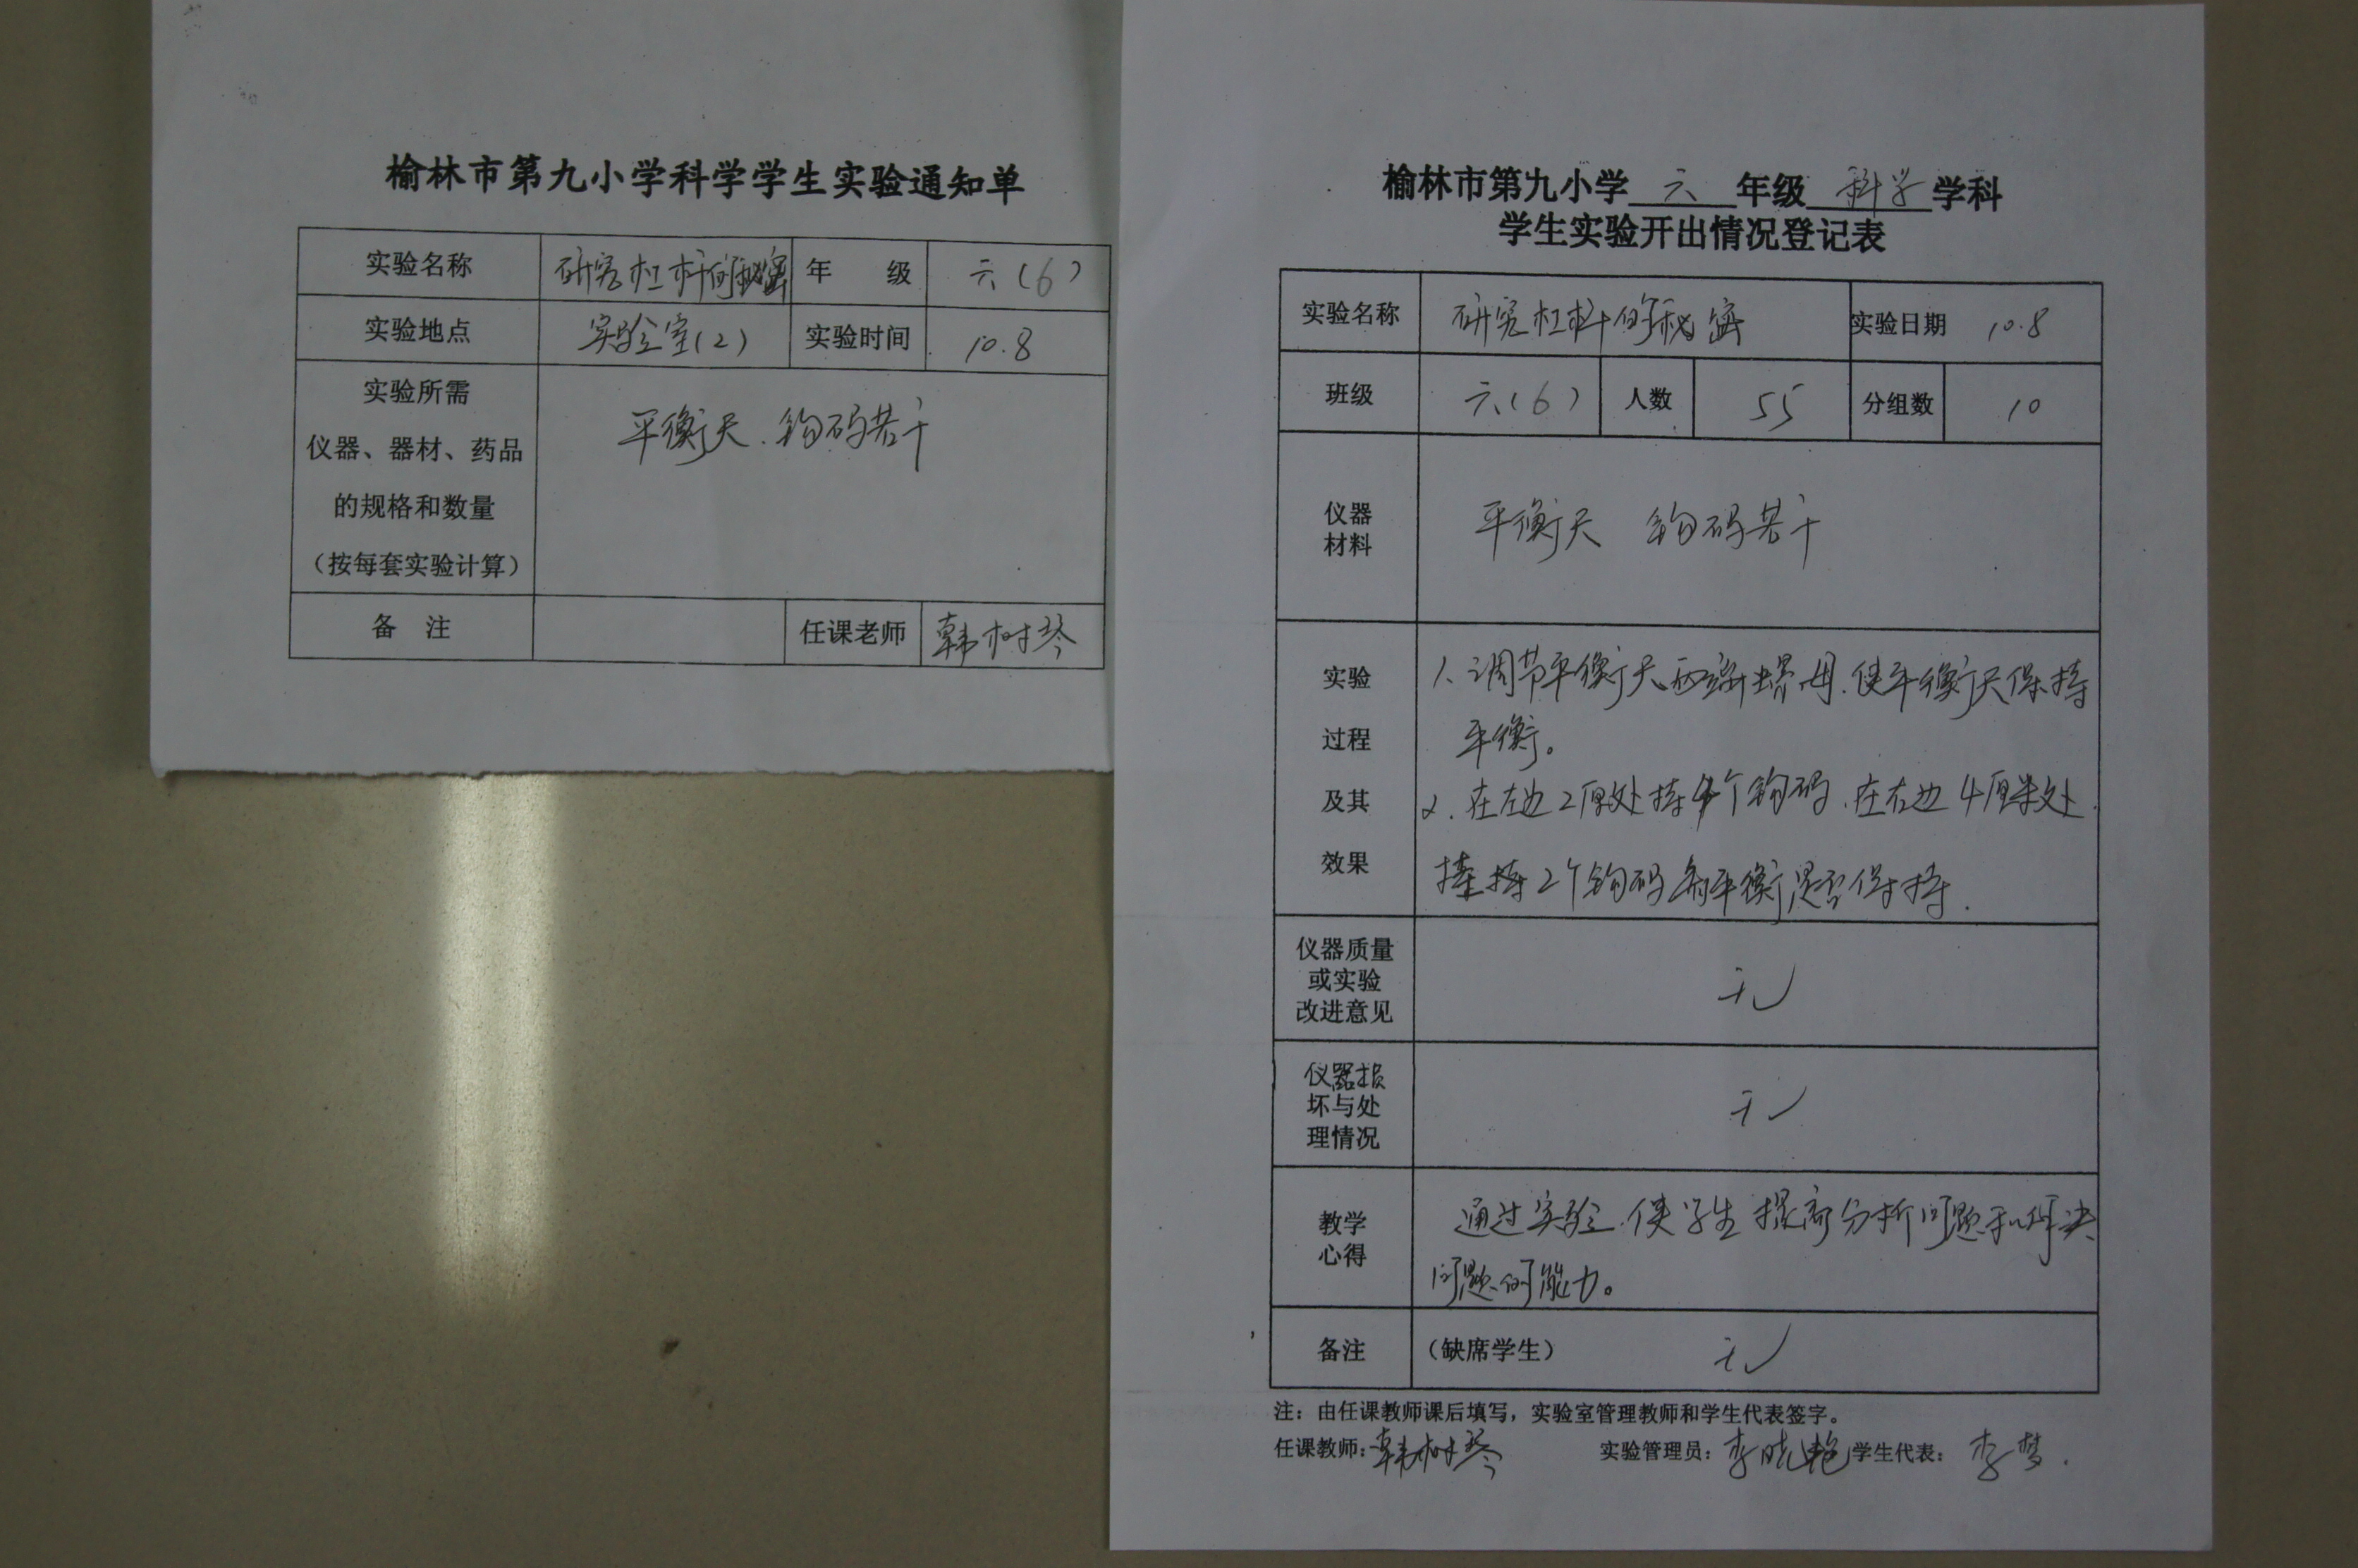 榆林市第九小学科学学生实验通知单
实验名称 研究杠杆的秘密 年 级 六(6)
实验地点 实验室(2) 实验时间 10.8
实验所需
仪器、器材、药品
的规格和数量
(按每套实验计算)
平衡尺、钩码若干
备 注 任课老师 韩树琴
榆林市第九小学 六 年级 科学 学科
学生实验开出情况登记表
实验名称 研究杠杆的秘密 实验日期 10.8
班级 六(6) 人数 55 分组数 10
仪器
材料
平衡尺 钩码若干
实验
过程
及其
效果
1、调节平衡尺两端螺母.使平衡尺保持
平衡。
2.在左边2厘处持4个钩码.在右边4厘米处
持2个钩码看平衡是否保持.
仪器质量
或实验
改进意见
无
仪器损
坏与处
理情况
无
教学
心得
通过实验.使学生提高分析问题和解决
问题的能力。
备注 (缺席学生) 无
注:由任课教师课后填写,实验室管理教师和学生代表签字。
任课教师:韩树琴 实验管理员:李晓艳 学生代表:李梦.